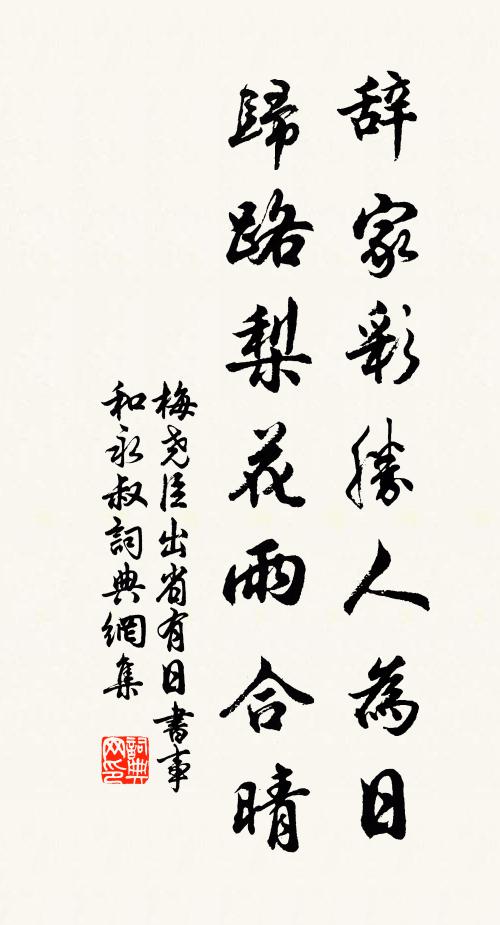 辞家彩勝人為日
歸路梨花雨合晴
梅尧臣出省有日書事
和永叔詞典網集
詞典
网印